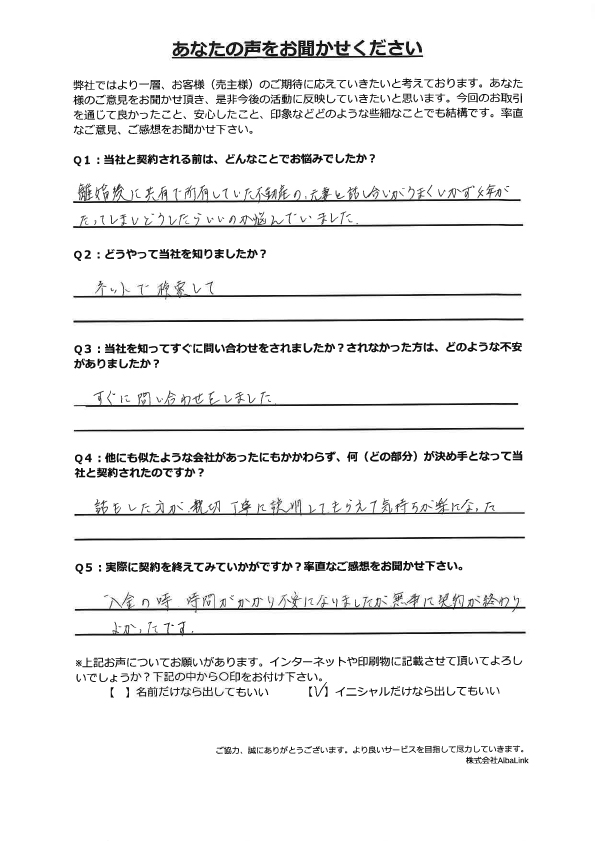 あなたの声をお聞かせください
弊社ではより一層、お客様（売主様）のご期待に応えていきたいと考えております。あなた
様のご意見をお聞かせ頂き、是非今後の活動に反映していきたいと思います。今回のお取引
を通じて良かったこと、安心したこと、印象などどのような些細なことでも結構です。率直
なご意見、ご感想をお聞かせ下さい。
Q１：当社と契約される前は、どんなことでお悩みでしたか？
離婚後に共有で所有していた不動産の、元妻と話し合いがうまくいかず年が
たってしまいどうしたらいいのか悩んでいました。
Q２：どうやって当社を知りましたか？
ネットで検索して
Q３：当社を知ってすぐに問い合わせをされましたか？されなかった方は、どのような不安
がありましたか？
すぐに問い合わせをしました
Q４：他にも似たような会社があったにもかかわらず、何（どの部分）が決め手となって当
社と契約されたのですか？
話をした方が、親切丁寧に説明してもらえて気持ちが楽になった
Q５：実際に契約を終えてみていかがですか？率直なご感想をお聞かせ下さい。
入金の時 時間がかかり不安になりましたが無事に契約が終わり
よかったです。
※上記お声についてお願いがあります。インターネットや印刷物に記載させて頂いてよろし
いでしょうか？下記の中から〇印をお付け下さい。
【 】名前だけなら出してもいい 【✓】イニシャルだけなら出してもいい
ご協力、誠にありがとうございます。より良いサービスを目指して尽力していきます。
株式会社AlbaLink